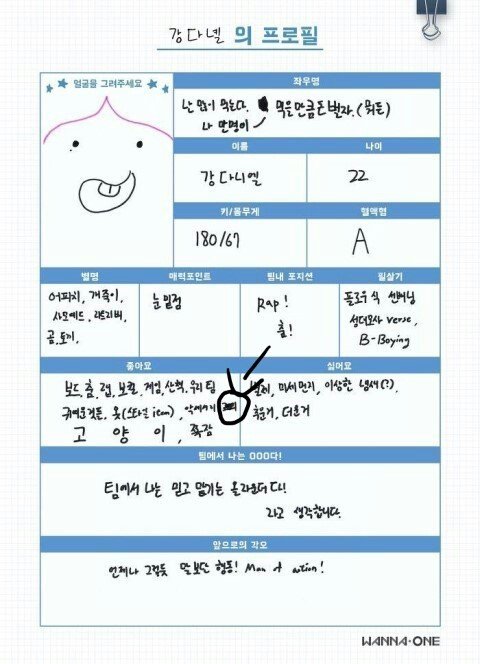 강다넬 의 프로필
얼굴을 그려주세요
좌우명
난 많이 먹는다. 먹을만큼 돈 벌자. (뭐든)
나 만명이
이름
나이
강다니엘
22
키/몸무게
혈액형
180/67
A
별명
매력포인트
팀내 포지션
필살기
어피치, 개죽이,
사모예드, 리트리버,
곰, 토끼,
눈밑점
Rap!
춤!
플로우식 선배님
성대모사 verse,
B-Boying
좋아요
싫어요
보드, 춤, 랩, 보컬, 게임, 산책, 우리 팀
귀여운것들, 옷(스타일 item), 악세사리
고양이, 육감
벌레, 미세먼지, 이상한 냄새(?),
추운거, 더운거
팀에서 나는 OOO다!
팀에서 나는 믿고 맡기는 올라운더다!
라고 생각합니다.
앞으로의 각오
언제나 그렇듯 말보단 행동! Man of action!
WANNA·ONE